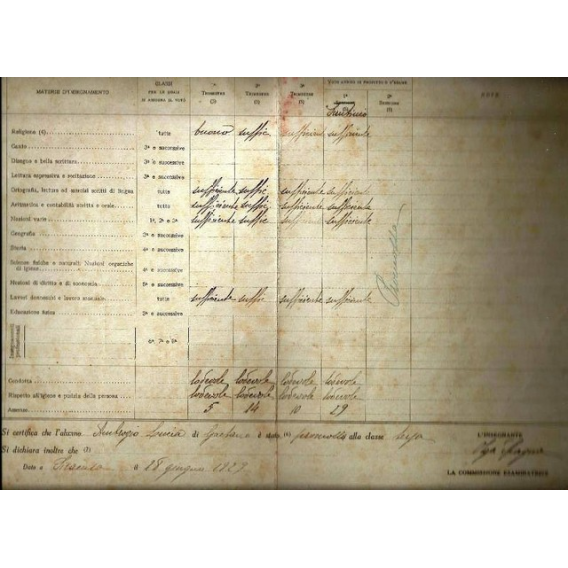 MATERIE D'INSEGNAMENTO CLASSI 1° TRIMESTRE 2° TRIMESTRE 3° TRIMESTRE NOTE
Religione tutte buono suffic sufficiente sufficiente
Canto 2ª e successive
Disegno e bella scrittura 2ª e successive
Lettura espressiva e recitazione 2ª e successive
Ortografia, lettura ed esercizi scritti di lingua tutte sufficiente suffic sufficiente sufficiente
Aritmetica e contabilità scritta e orale tutte sufficiente suffic sufficiente sufficiente
Nozioni varie 1ª, 2ª e 3ª sufficiente suffic sufficiente sufficiente
Geografia 2ª e successive
Storia e successive
Scienze fisiche e naturali. Nozioni organiche di igiene e successive
Nozioni di diritto e di economia e successive
Lavori donneschi e lavoro manuale tutte sufficiente suffic sufficiente sufficiente
Educazione fisica e successive
Promossa
Condotta lodevole lodevole lodevole lodevole
Rispetto all'igiene e pulizia della persona lodevole lodevole lodevole lodevole
Assenze 5 14 10 29
Si certifica che l'alunno Ambrogio Lucia di Gaetano è stata promossa alla classe L'INSEGNANTE
Si dichiara inoltre che
Data a il 28 giugno 1929 LA COMMISSIONE ESAMINATRICE